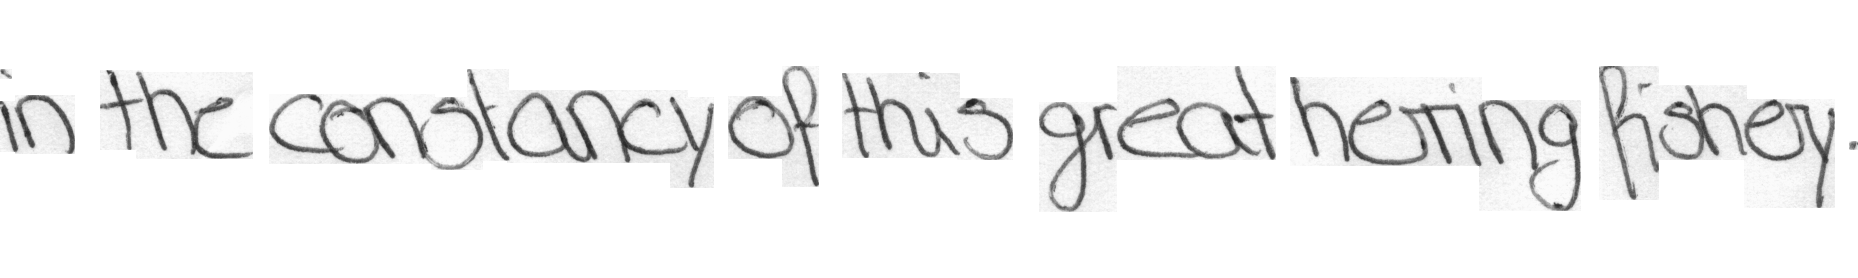 in the constancy of this great herring fishery.